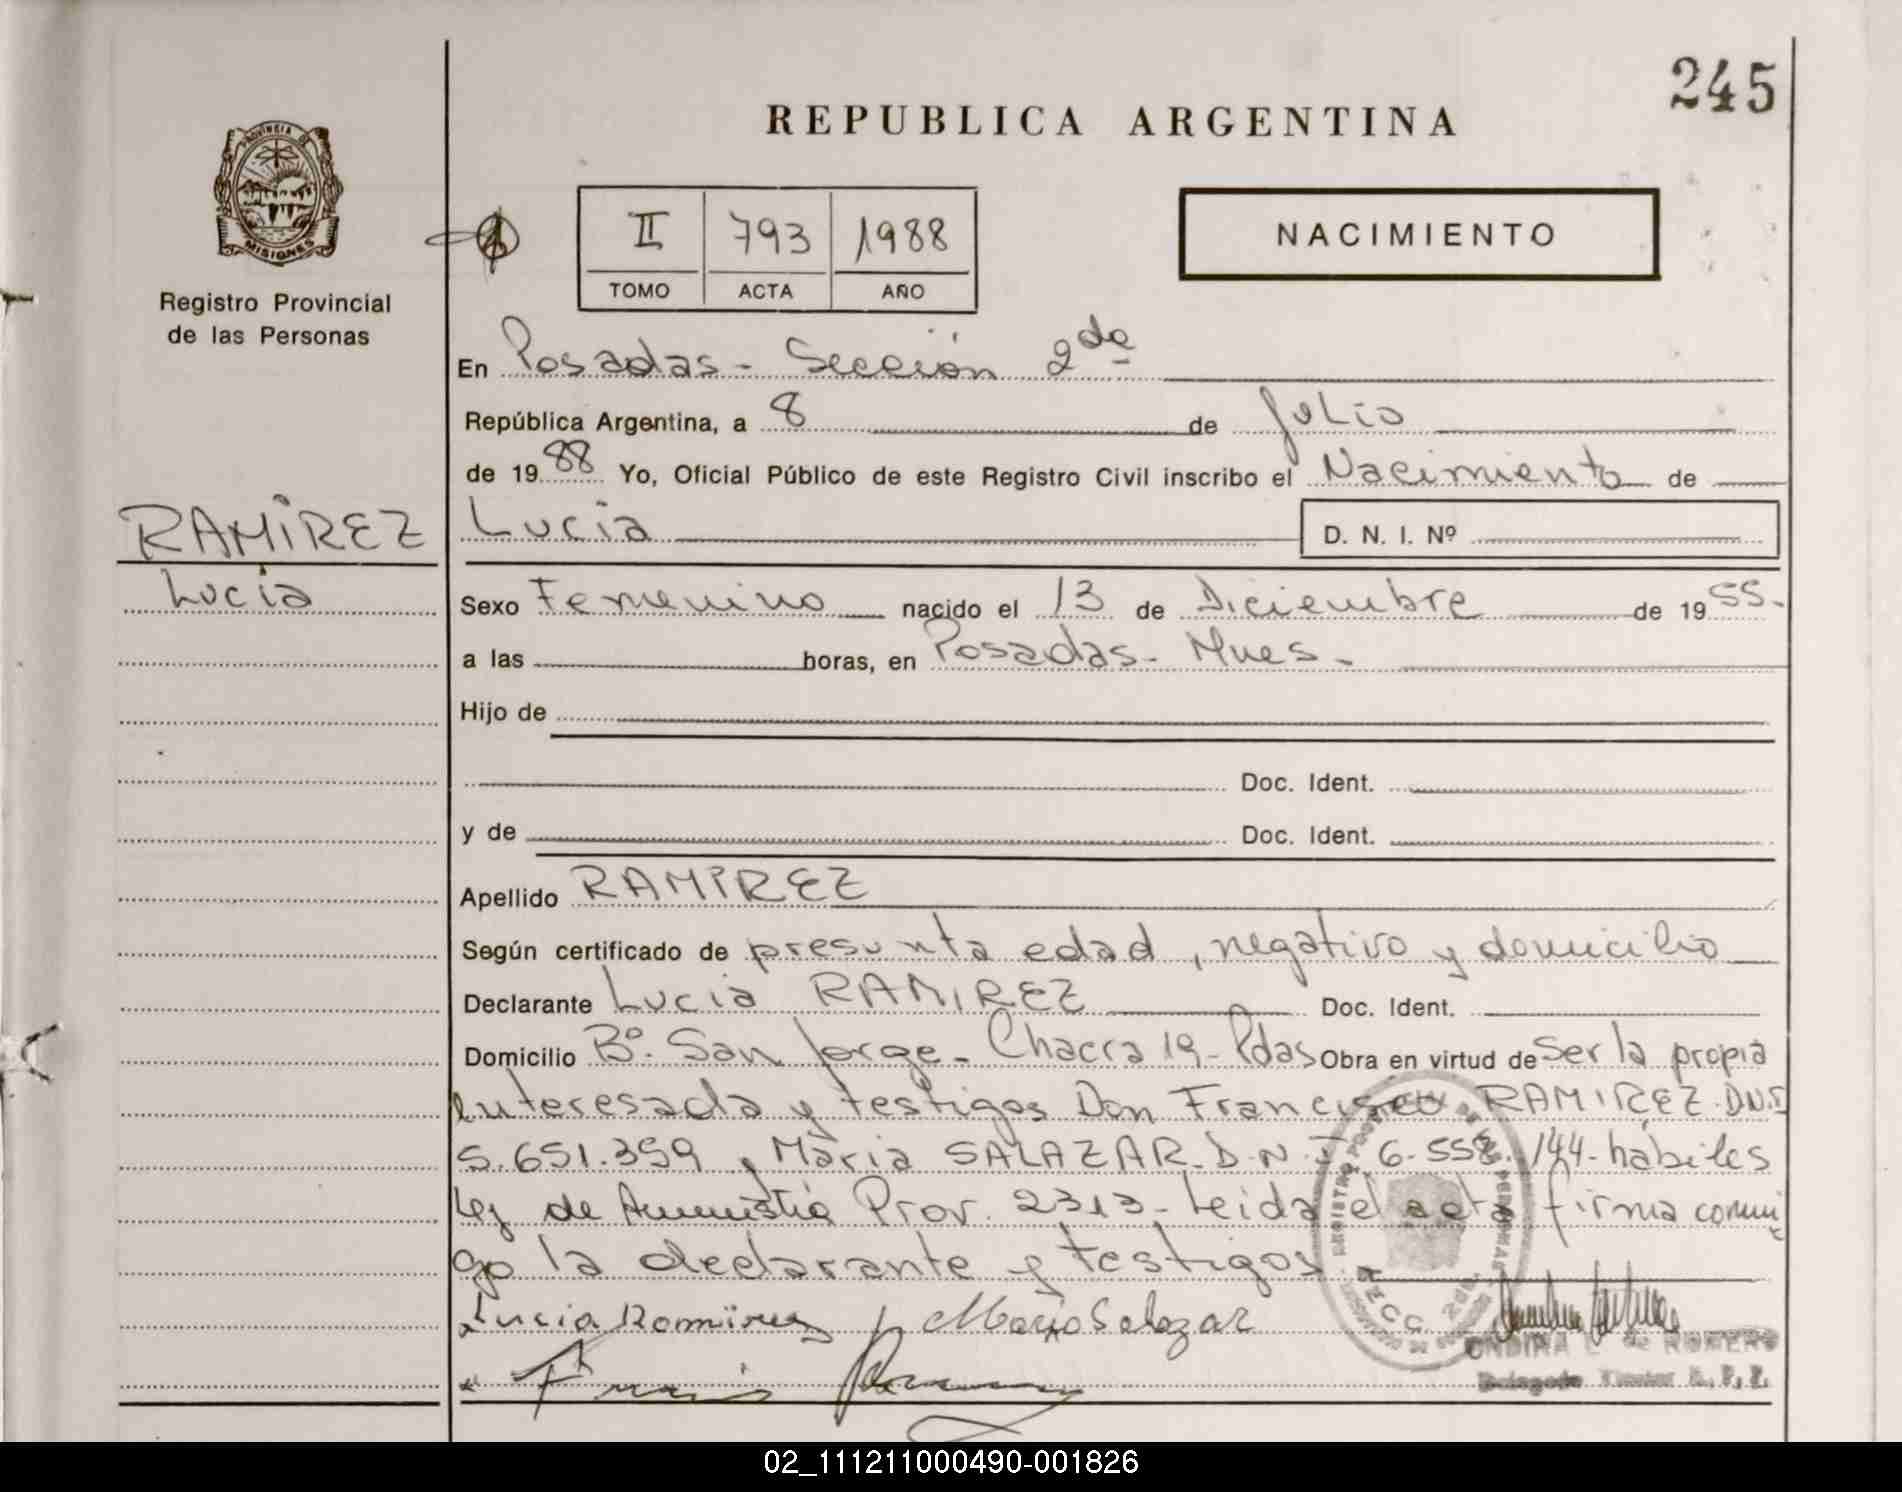 245
REPUBLICA ARGENTINA
PROVINCIA DE
MISIONES
Registro Provincial
de las Personas
II 793 1988
TOMO ACTA AÑO
NACIMIENTO
En Posadas - Sección 2da
República Argentina, a 8 de Julio
de 1988 Yo, Oficial Público de este Registro Civil inscribo el Nacimiento de
RAMÍREZ
Lucía
Lucía D. N. I. Nº
Sexo Femenino nacido el 13 de Diciembre de 1955.
a las horas, en Posadas - Mnes -
Hijo de
Doc. Ident.
y de Doc. Ident.
Apellido RAMIREZ
Según certificado de presunta edad, negativo y domicilio
Declarante Lucia RAMIREZ Doc. Ident.
Domicilio Bº. San Jorge - Chacra 19 - Pdas Obra en virtud de Ser la propia
interesada y testigos Don Francisco RAMIREZ D.N.I
5.651.359, María SALAZAR D.N.I 6.558.144 - hábiles
Ley de Amnistía Prov. 2313 - Leida el acta firma conmi
go la declarante y testigos
Lucia Ramirez Maria Salazar
ONDINA de ROMERO
Delegada Titular R. P. P.
02_111211000490-001826